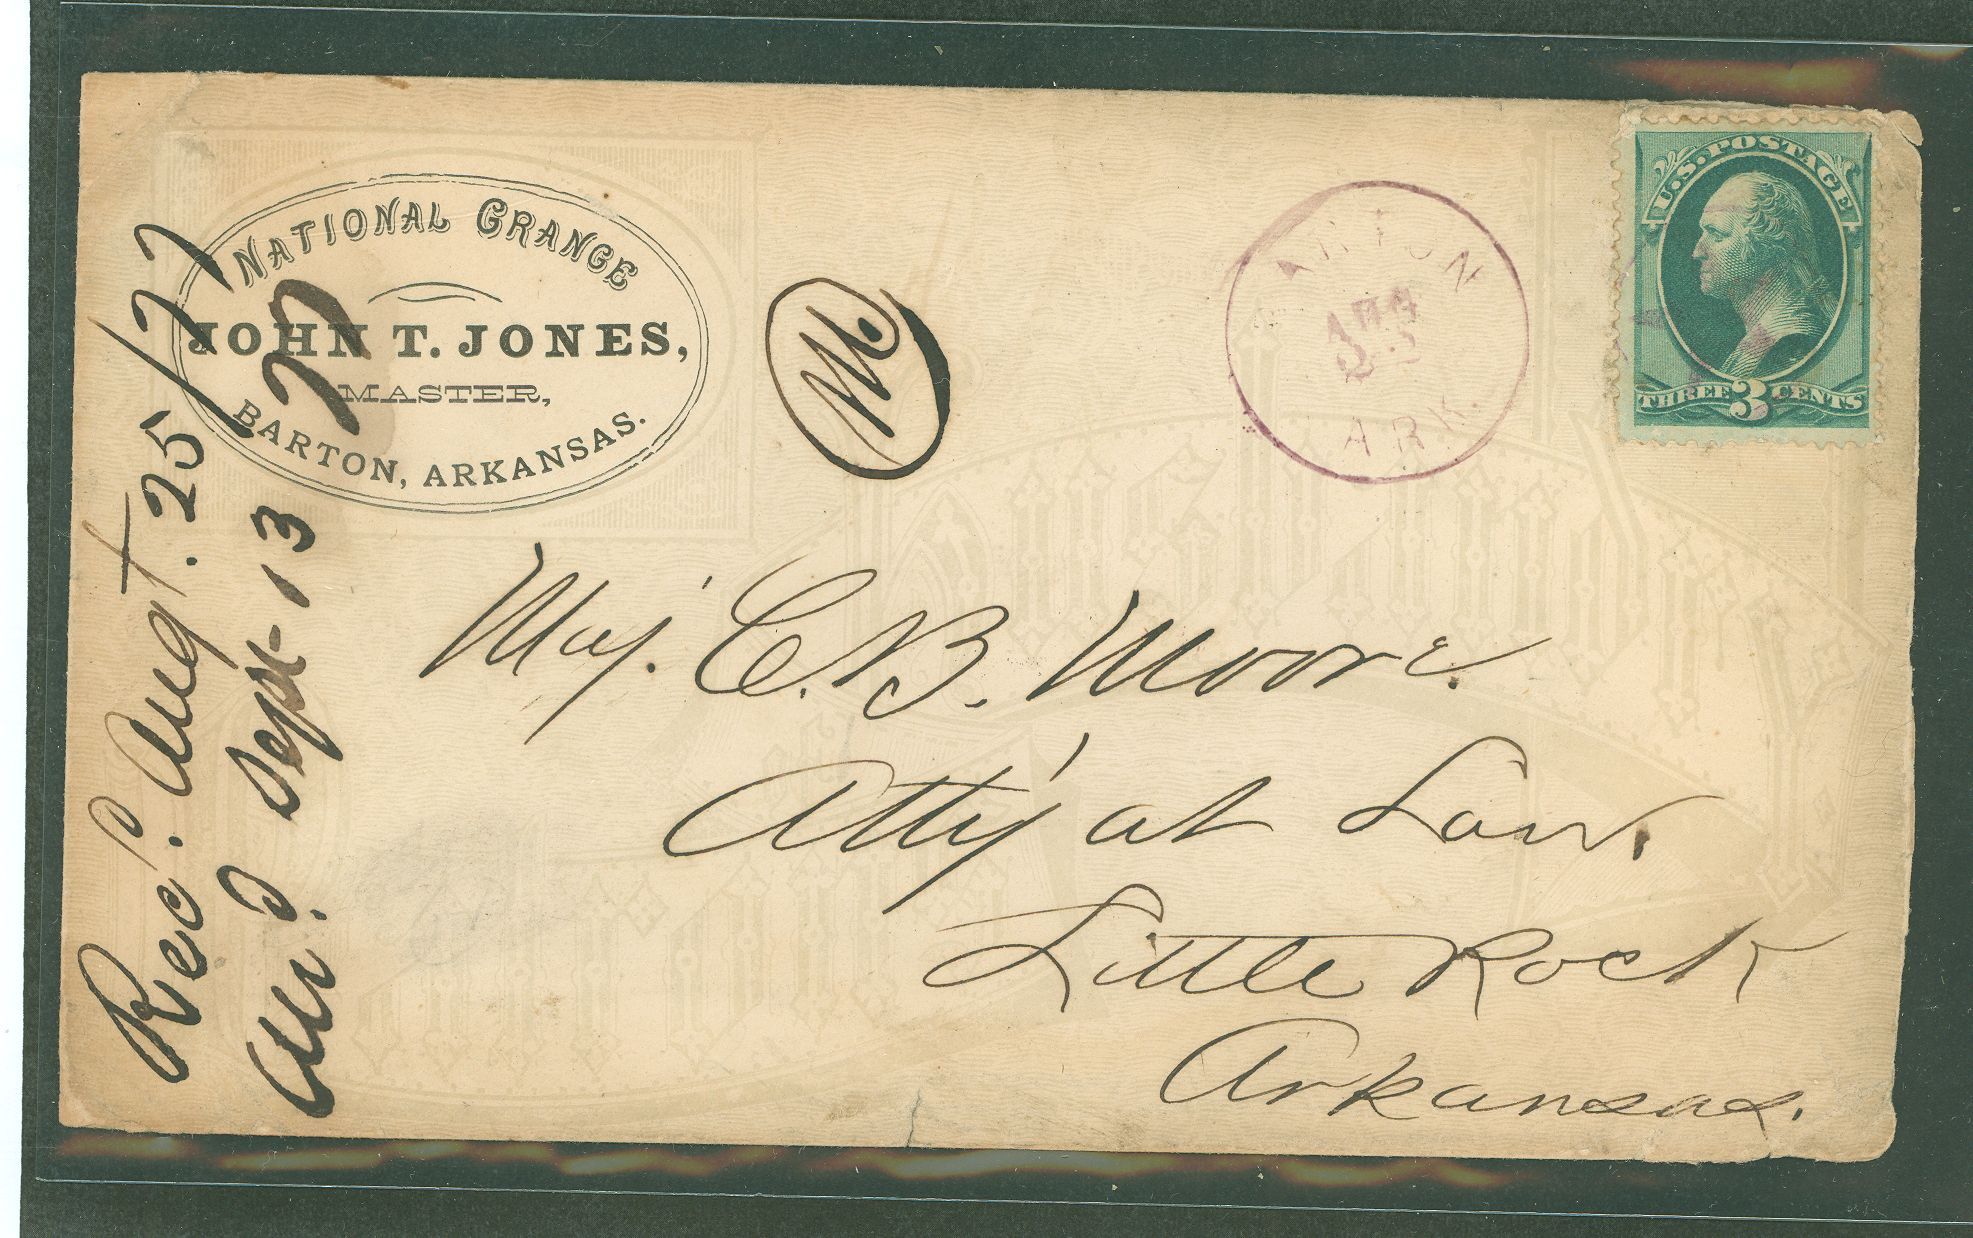 NATIONAL GRANGE
JOHN T. JONES,
MASTER,
BARTON, ARKANSAS.
M
ARK.
U.S. POSTAGE
THREE 3 CENTS
Maj. C. B. Moore.
Atty' at Law.
Little Rock
Arkansas.
Recd. Augt. 25/77
And. Sept- 13 77